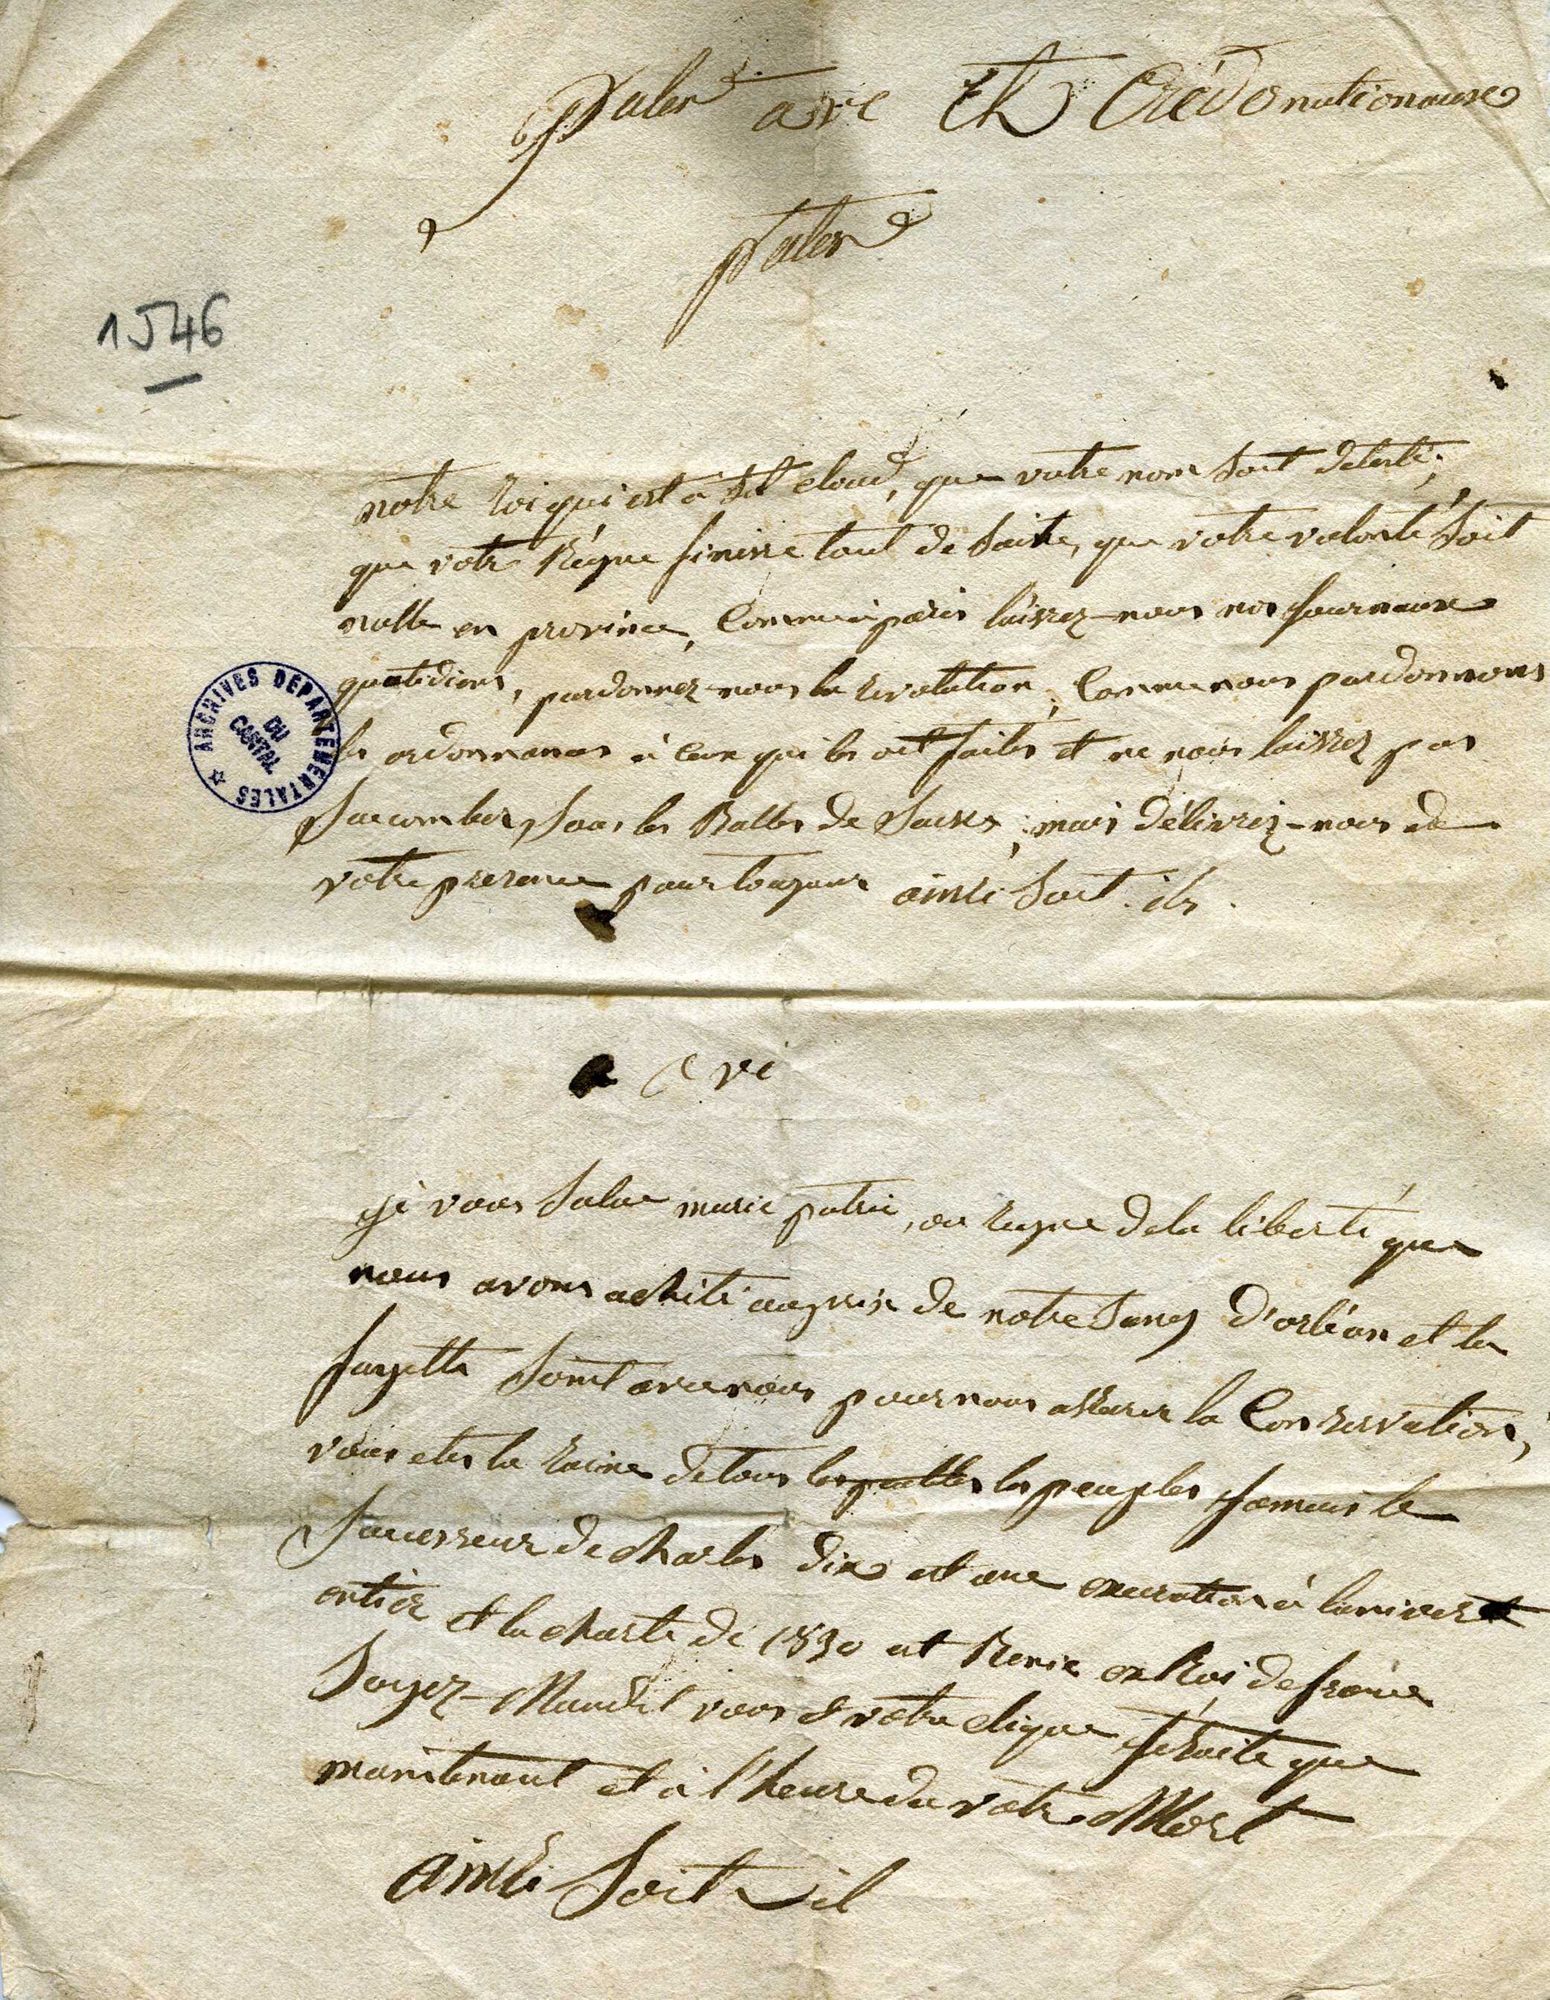 Pater ave Et Crédo nationaux
pater
1 J 46
notre Roi qui est à St Cloud, que votre nom soit detesté,
que votre Règne finisse tout de suite, que votre volonté soit
nulle en province, Comme à paris laissez-nous nos journaux
quotidiens, pardonnez-nous la révolution, Comme nous pardonnons
les ordonnances à Ceux qui les ont faites et ne nous laissez pas
succomber sous les Balles de suisses, mais délivrez-nous de
votre presence pour toujour ainsi soit-ils.
ARCHIVES DEPARTEMENTALES
DU
CANTAL
ave
je vous salue marie patrie, ou regne de la liberté que
nous avons acheté au prix de notre sang d'orléan et la
fayette sont avec nous pour nous assurer la Conservation,
vous etes la reine de tous les les peuples jamais le
successeur de charles dix est une execration à l'univers
entier et la charte de 1830 est en Roi de france
soyez-Maudit vous et votre clique jesuite que
maintenant et à l'heure du votre Mort
ainsi soit-il